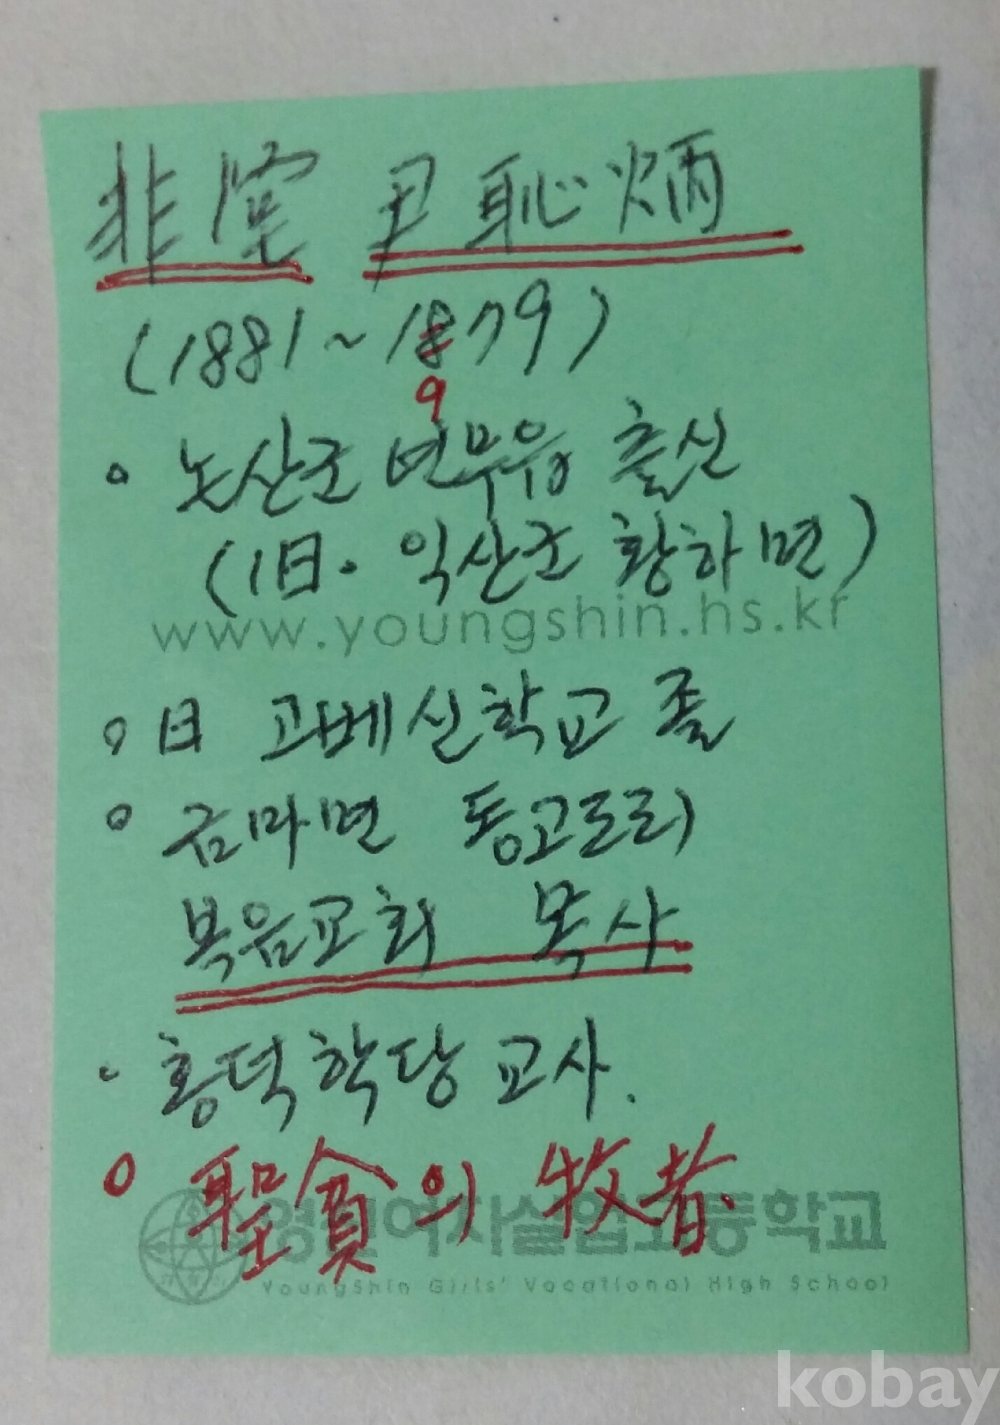 非 尹恥炳
(1881~1879)
9
논산군 연무읍 출신
(旧. 익산군 황하면)
www.youngshin.hs.kr
日 고베신학교 졸
금마면 동고도리
복음교회 목사
흥덕학당 교사.
聖貧의 牧者.
영신여자실업고등학교
YoungShin Girls' Vocational High School
kobay